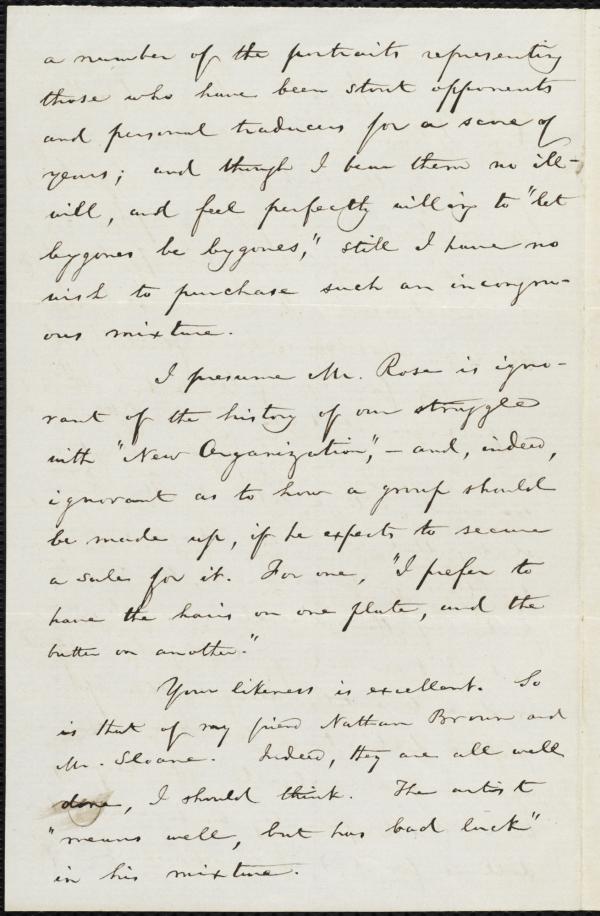 a number of the portraits representing
those who have been stout opponents
and personal traducers for a score of
years; and though I bear them no ill-
will, and feel perfectly willing to "let
bygones be bygones," still I have no
wish to purchase such an incongru-
ous mixture.
I presume Mr. Rose is igno-
rant of the history of our struggle
with "New Organization," – and, indeed,
ignorant as to how a group should
be made up, if he expects to secure
a sale for it. For one, "I prefer to
have the hairs on one plate, and the
butter on another."
Your likeness is excellent. So
is that of my friend Nathan Brown and
Mr. Sloane. Indeed, they are all well
done, I should think. The artist
"means well, but has bad luck"
in his mixture.